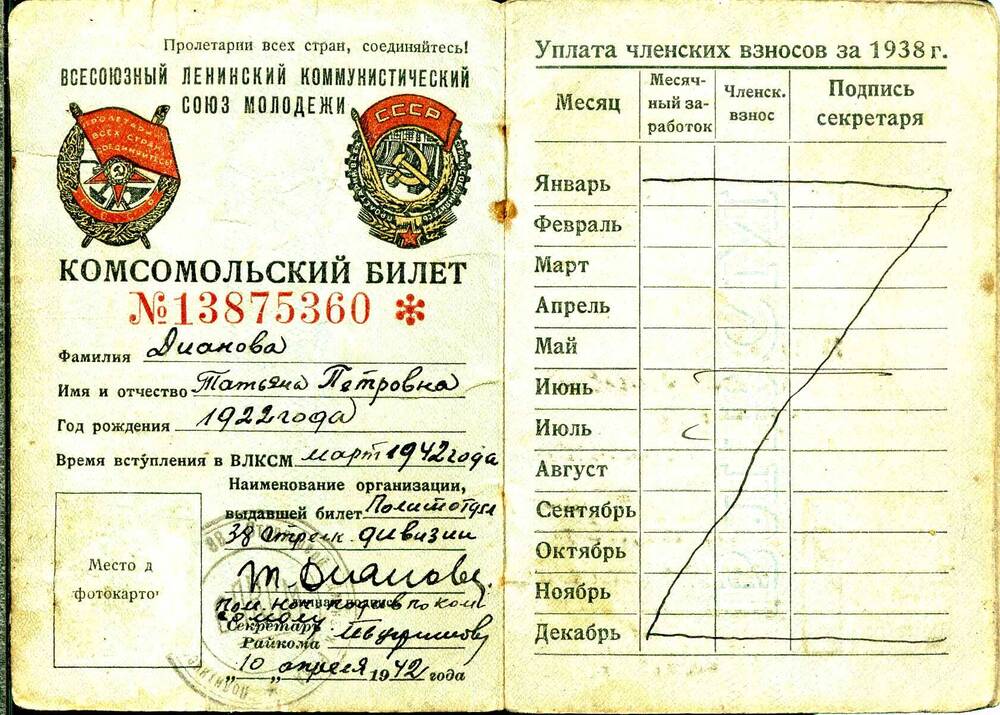 Пролетарии всех стран, соединяйтесь!
ВСЕСОЮЗНЫЙ ЛЕНИНСКИЙ КОММУНИСТИЧЕСКИЙ
СОЮЗ МОЛОДЕЖИ
ПРОЛЕТАРИИ
ВСЕХ СТРАН
СОЕДИНЯЙТЕСЬ!
СССР
КОМСОМОЛЬСКИЙ БИЛЕТ
№13875360 *
Фамилия Дианова
Имя и отчество Татьяна Петровна
Год рождения 1922 года
Время вступления в ВЛКСМ март 1942 года
Наименование организации,
выдавшей билет Политотдел
38 Стрелк. дивизии
Т Дианова
Личная подпись
Пом. Нач. по ком
сомолу
Секретарь
Райкома
"10" апреля 1942 года
Место д
фотокарто
Уплата членских взносов за 1938 г.
Месяц Месяч-ный за-работок Членск. взнос Подпись секретаря
Январь
Февраль
Март
Апрель
Май
Июнь
Июль
Август
Сентябрь
Октябрь
Ноябрь
Декабрь